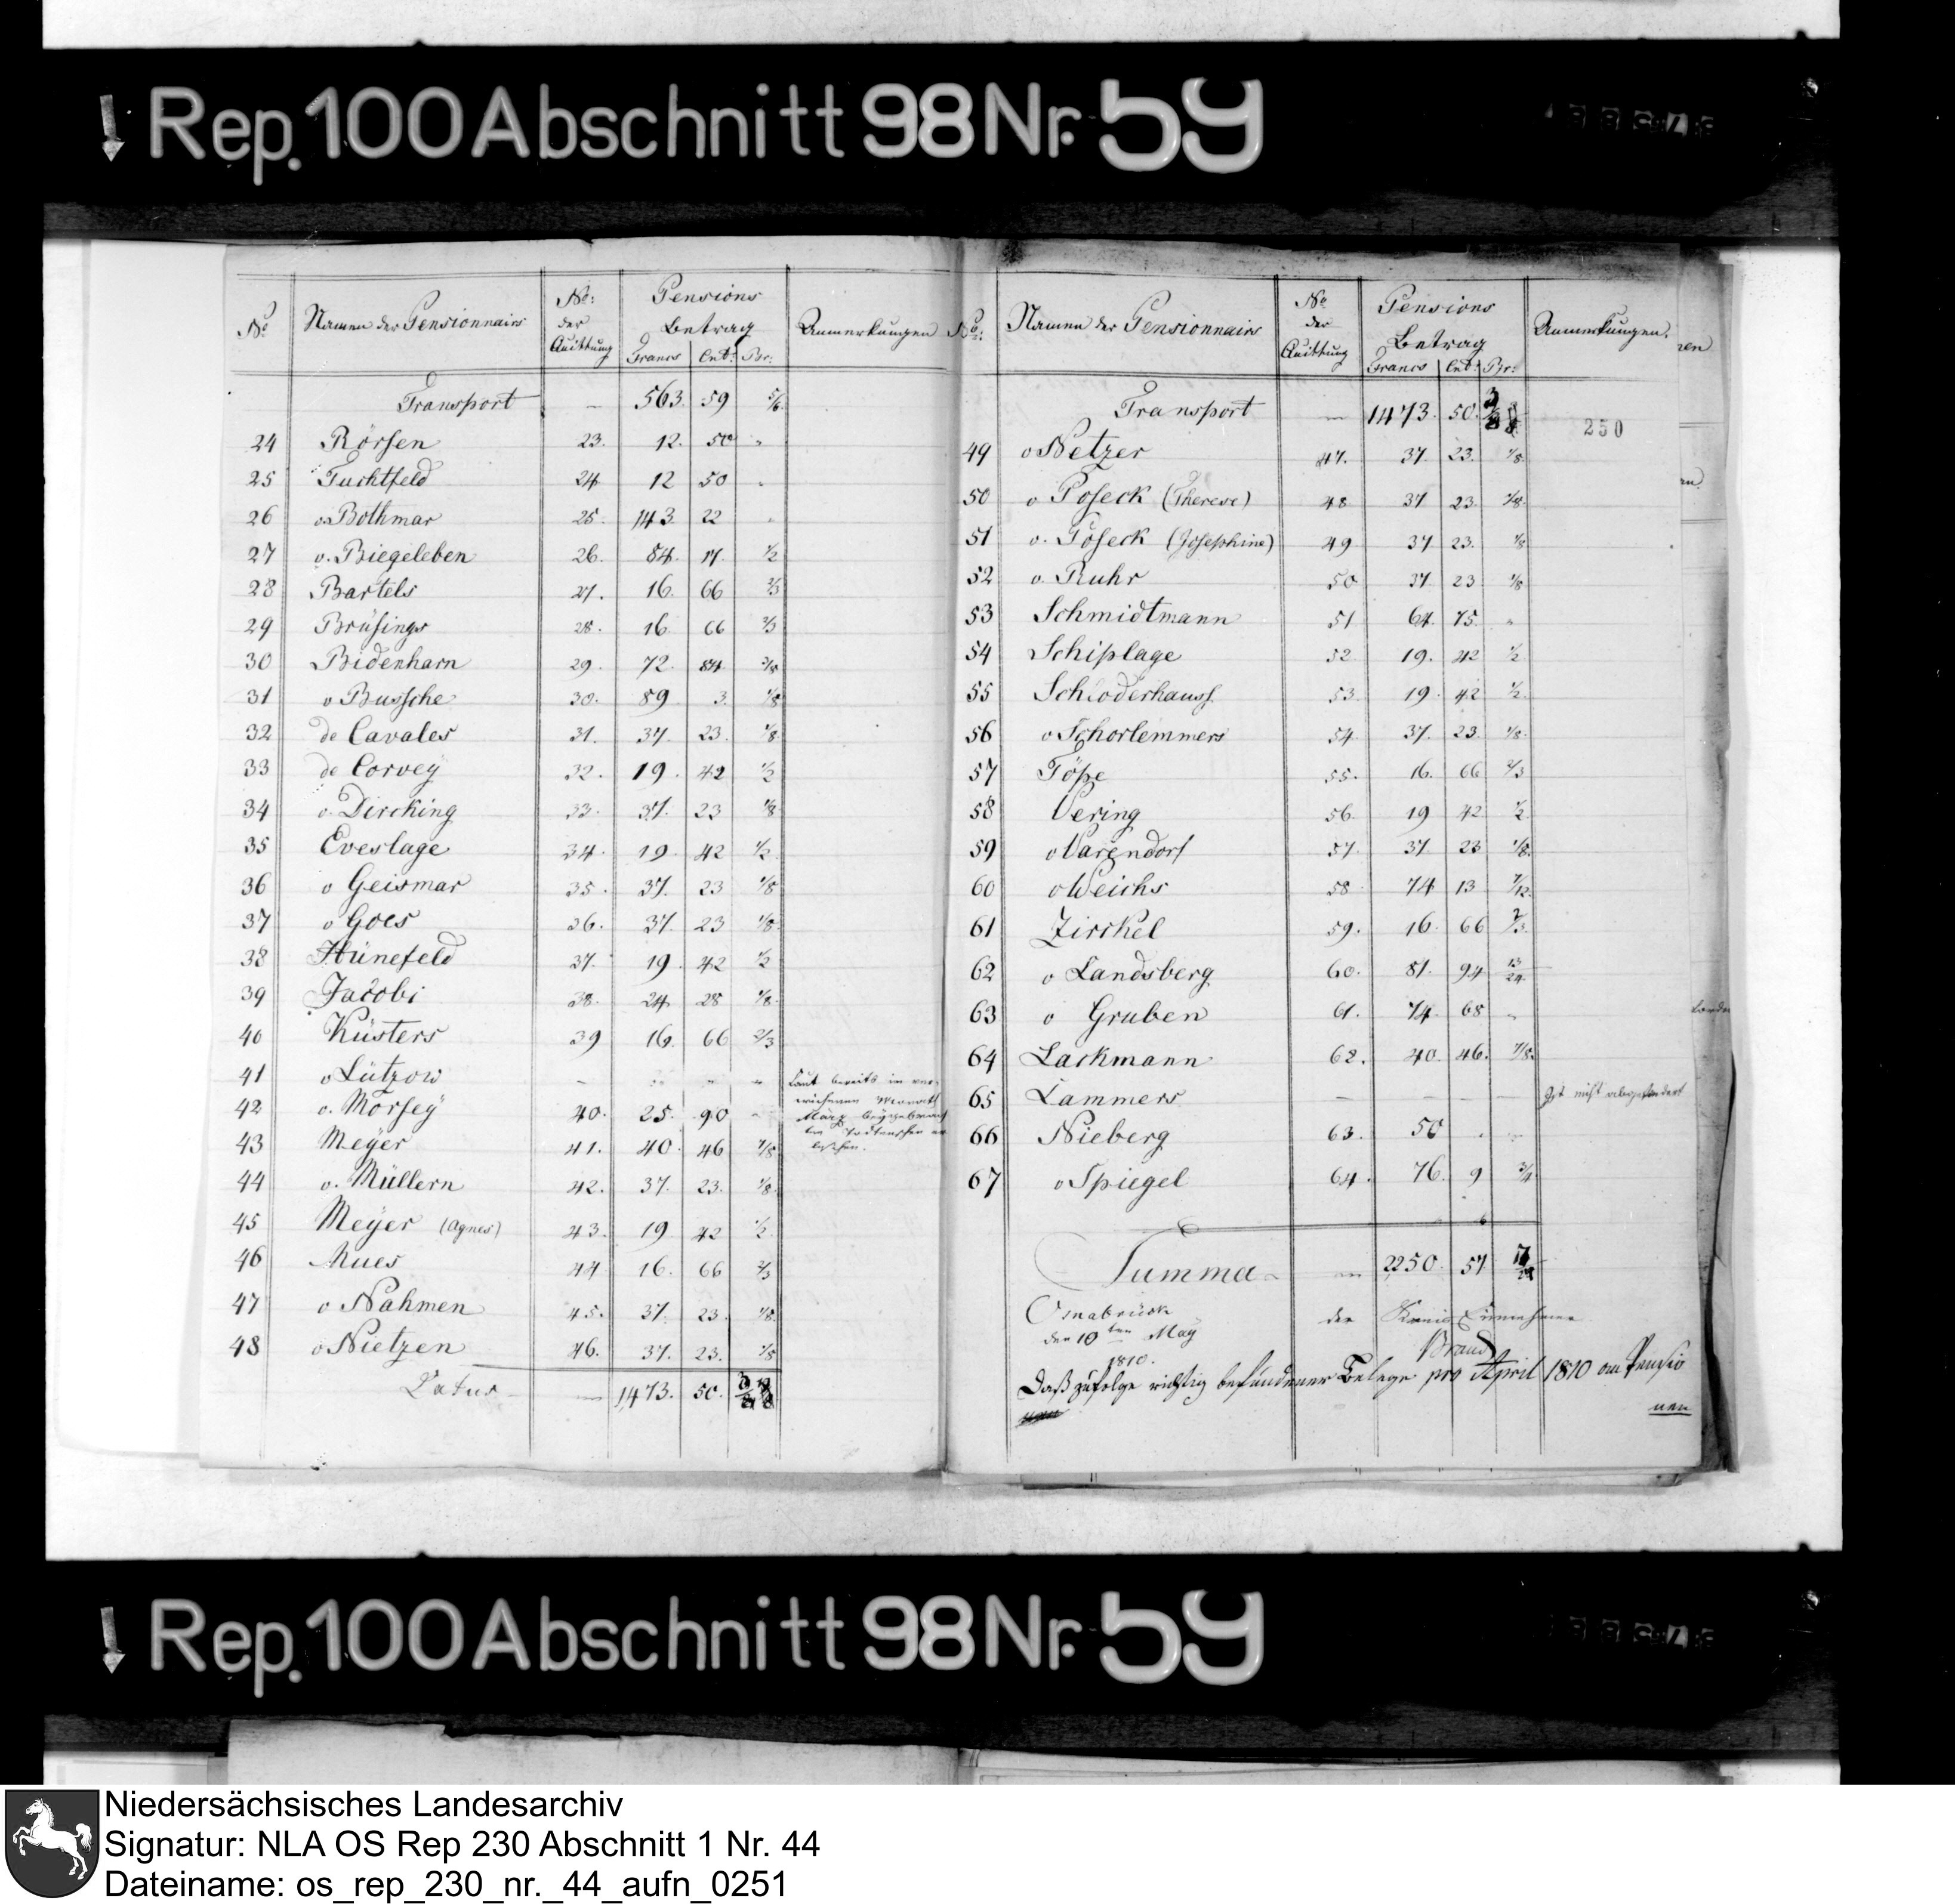 Rep. 100 Abschnitt 98 Nr. 59
No Namen der Pensionnairs No: der Quittung Pensions Betrag Francs Cnt: Br: Anmerkungen
Transport — 563. 59 5/6
24 Rörsen 23. 12. 50 "
25 Tuchtfeld 24 12 50 "
26 v. Bothmar 25. 143. 22 "
27 v. Biegeleben 26. 84. 17. 1/2
28 Bartels 27. 16. 66 2/3
29 Brüsings 28. 16. 66 2/3
30 Bidenharn 29. 72. 84
31 v Bussche 30. 89 3. 1/8
32 de Cavales 31. 37. 23. 1/8
33 de Corveÿ 32. 19. 42 1/2
34 v. Dircking 33. 37. 23 1/8
35 Eveslage 34. 19. 42 1/2
36 v Geismar 35. 37. 23 1/8
37 v Goes 36. 37. 23 1/8
38 Hünefeld 37. 19. 42 1/2
39 Jacobi 38. 24 28 1/8
40 Küsters 39 16. 66 2/3
41 v Lützow — " " " Laut bereits im
42 v. Morseÿ 40. 25. 90 "
März
43 Meÿer 41. 40. 46 7/8
44 v. Müllern 42. 37. 23. 1/8
45 Meÿer (Agnes) 43. 19. 42 1/2
46 Mues 44 16. 66 2/3
47 v Nahmen 45. 37. 23. 1/8
48 v Nietzen 46. 37. 23. 1/8
Latus — 1473. 50.
No: Namen der Pensionnairs No der Quittung Pensions Betrag Francs Cnt: Br: Anmerkungen.
Transport — 1473. 50.
250
49 v Netzer 47. 37. 23. 1/8
50 v Poseck (Therese) 48 37 23. 1/8
51 v. Poseck (Josephine) 49 37 23. 1/8
52 v. Ruhr 50 37 23 1/8
53 Schmidtmann 51 64. 75. "
54 Schiplage 52 19. 42 1/2
55 Schloderhauss 53. 19. 42 1/2
56 v Schorlemmers 54 37. 23 1/8
57 Töpe 55. 16. 66 2/3
58 Vering 56. 19 42 1/2
59 v Varendorf 57. 37. 23 1/8
60 v Weichs 58 74 13 7/12
61 Zirckel 59. 16. 66 2/3
62 v Landsberg 60. 81. 94 13/24
63 v Gruben 61. 74. 68 "
64 Lackmann 62. 40. 46. 7/8
65 Lammers — — — — Ist nicht
66 Nieberg 63. 50 " "
67 v Spiegel 64. 76. 9 3/4
Summa — 2250. 57
Osnabrück der Kreis Einnehmer
den 10ten Maÿ Brand
1810.
Daß zufolge richtig befundener Belege pro April 1810 an Pensio
nen
Rep. 100 Abschnitt 98 Nr. 59
Niedersächsisches Landesarchiv
Signatur: NLA OS Rep 230 Abschnitt 1 Nr. 44
Dateiname: os_rep_230_nr._44_aufn_0251